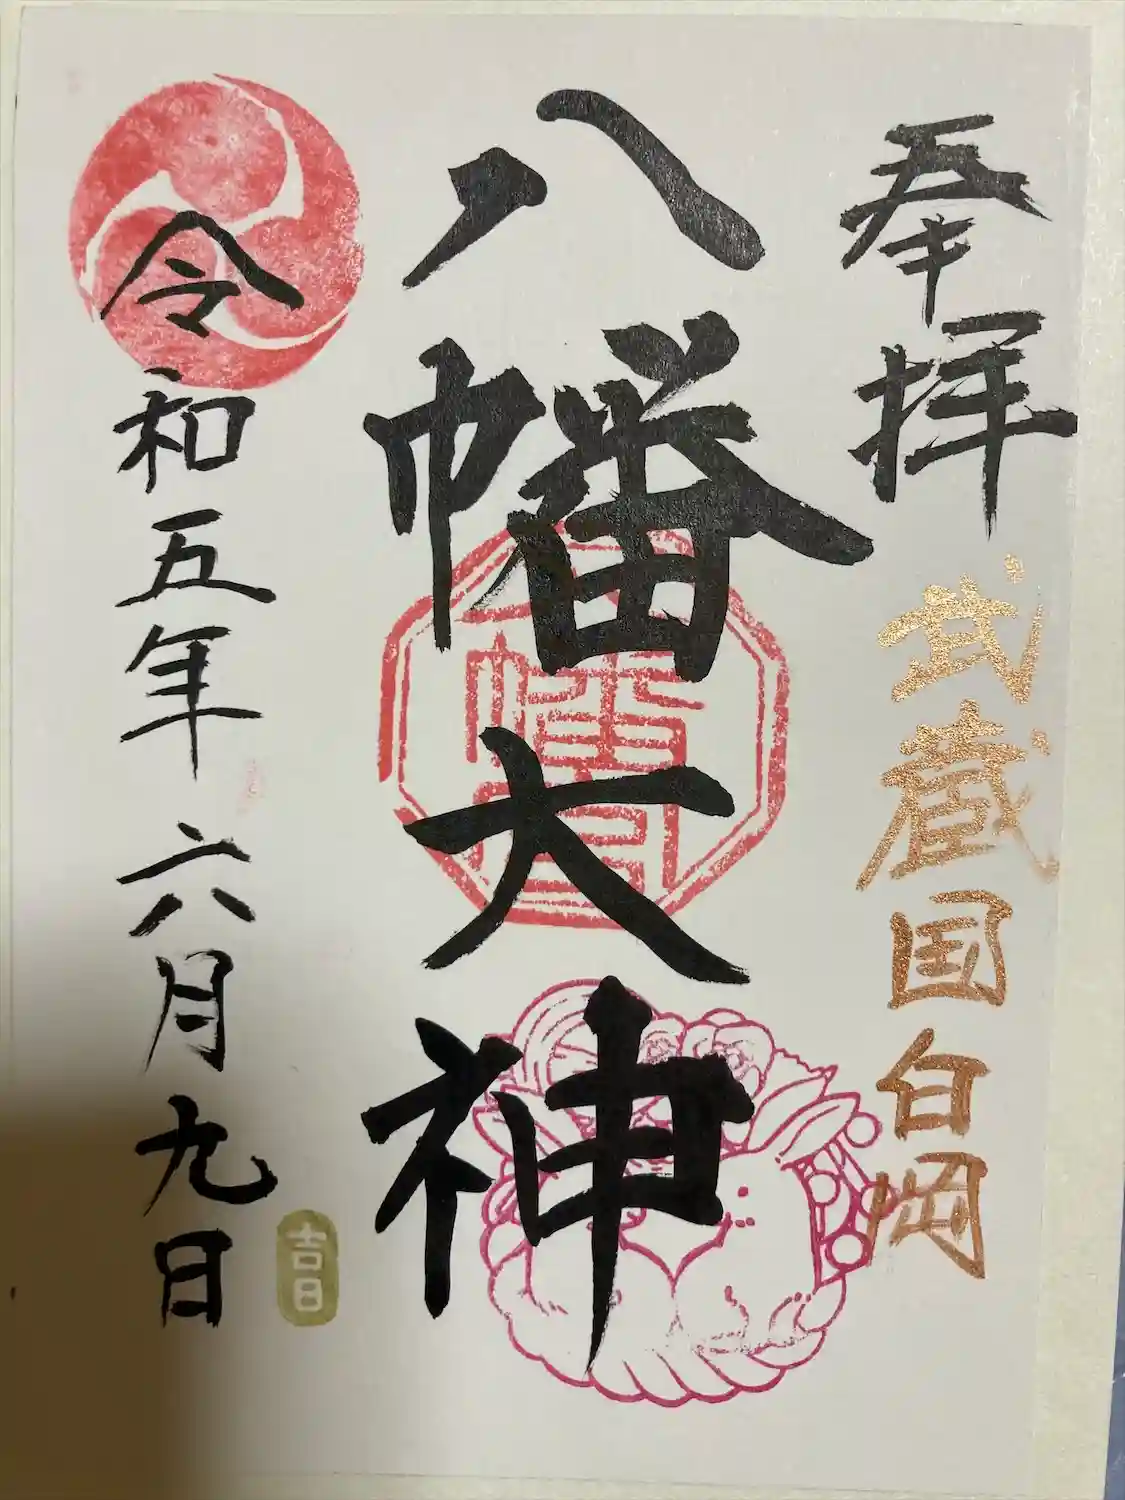 奉拝
武蔵国白岡
八幡大神
令和五年六月九日
吉日